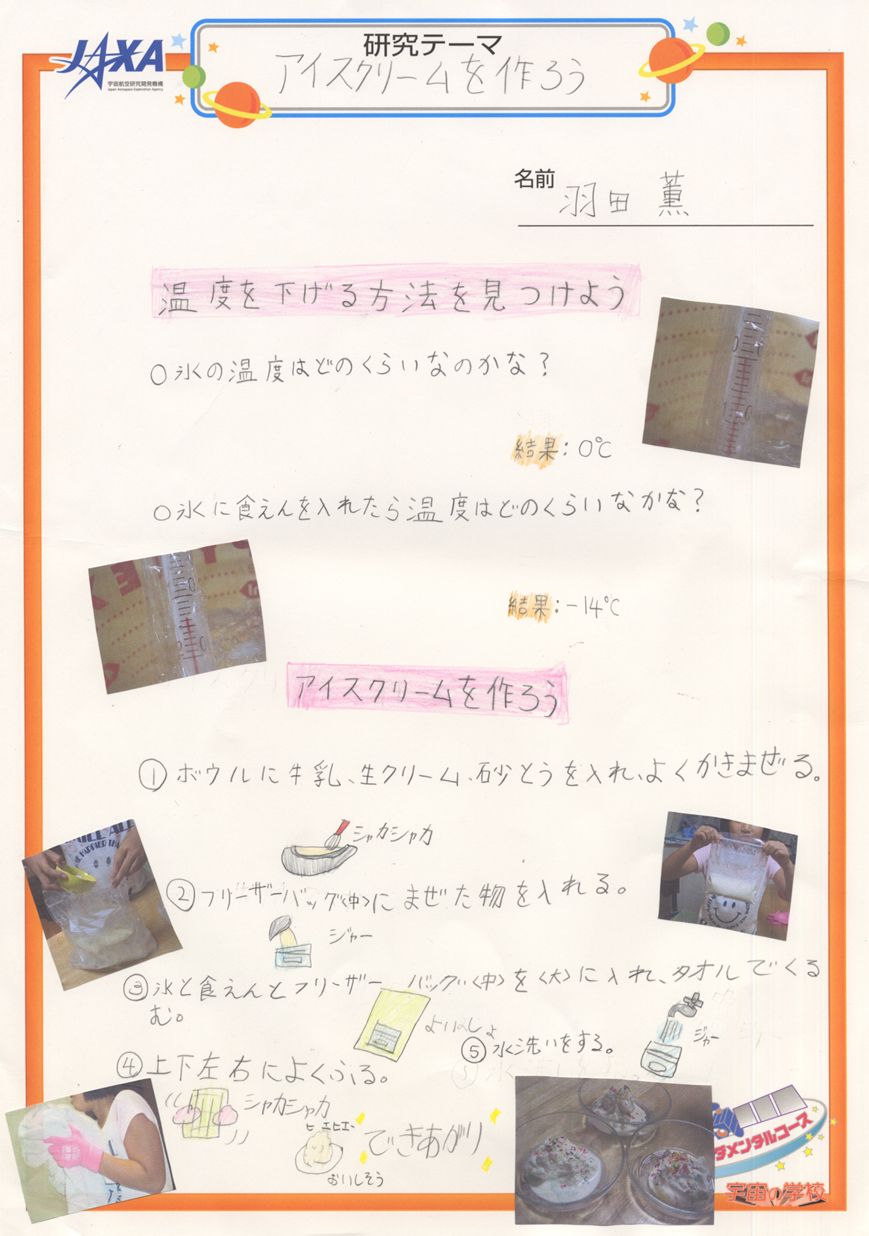 JAXA
宇宙航空研究開発機構
Japan Aerospace Exploration Agency
研究テーマ
アイスクリームを作ろう
名前 羽田 薫
温度を下げる方法を見つけよう
○氷の温度はどのくらいなのかな?
結果:0℃
○氷に食えんを入れたら温度はどのくらいなかな?
結果:-14℃
アイスクリームを作ろう
①ボウルに牛乳、生クリーム、砂とうを入れ、よくかきまぜる。
シャカシャカ
②フリーザーバッグ〈中〉にまぜた物を入れる。
ジャー
③氷と食えんとフリーザー バッグ〈中〉を〈大〉に入れ、タオルでくる
む。
よいしょ
④上下左右によくふる。
シャカシャカ
⑤水洗いをする。
ジャー
ヒエヒエ
できあがり
おいしそう
ダメンタルコース
宇宙の学校